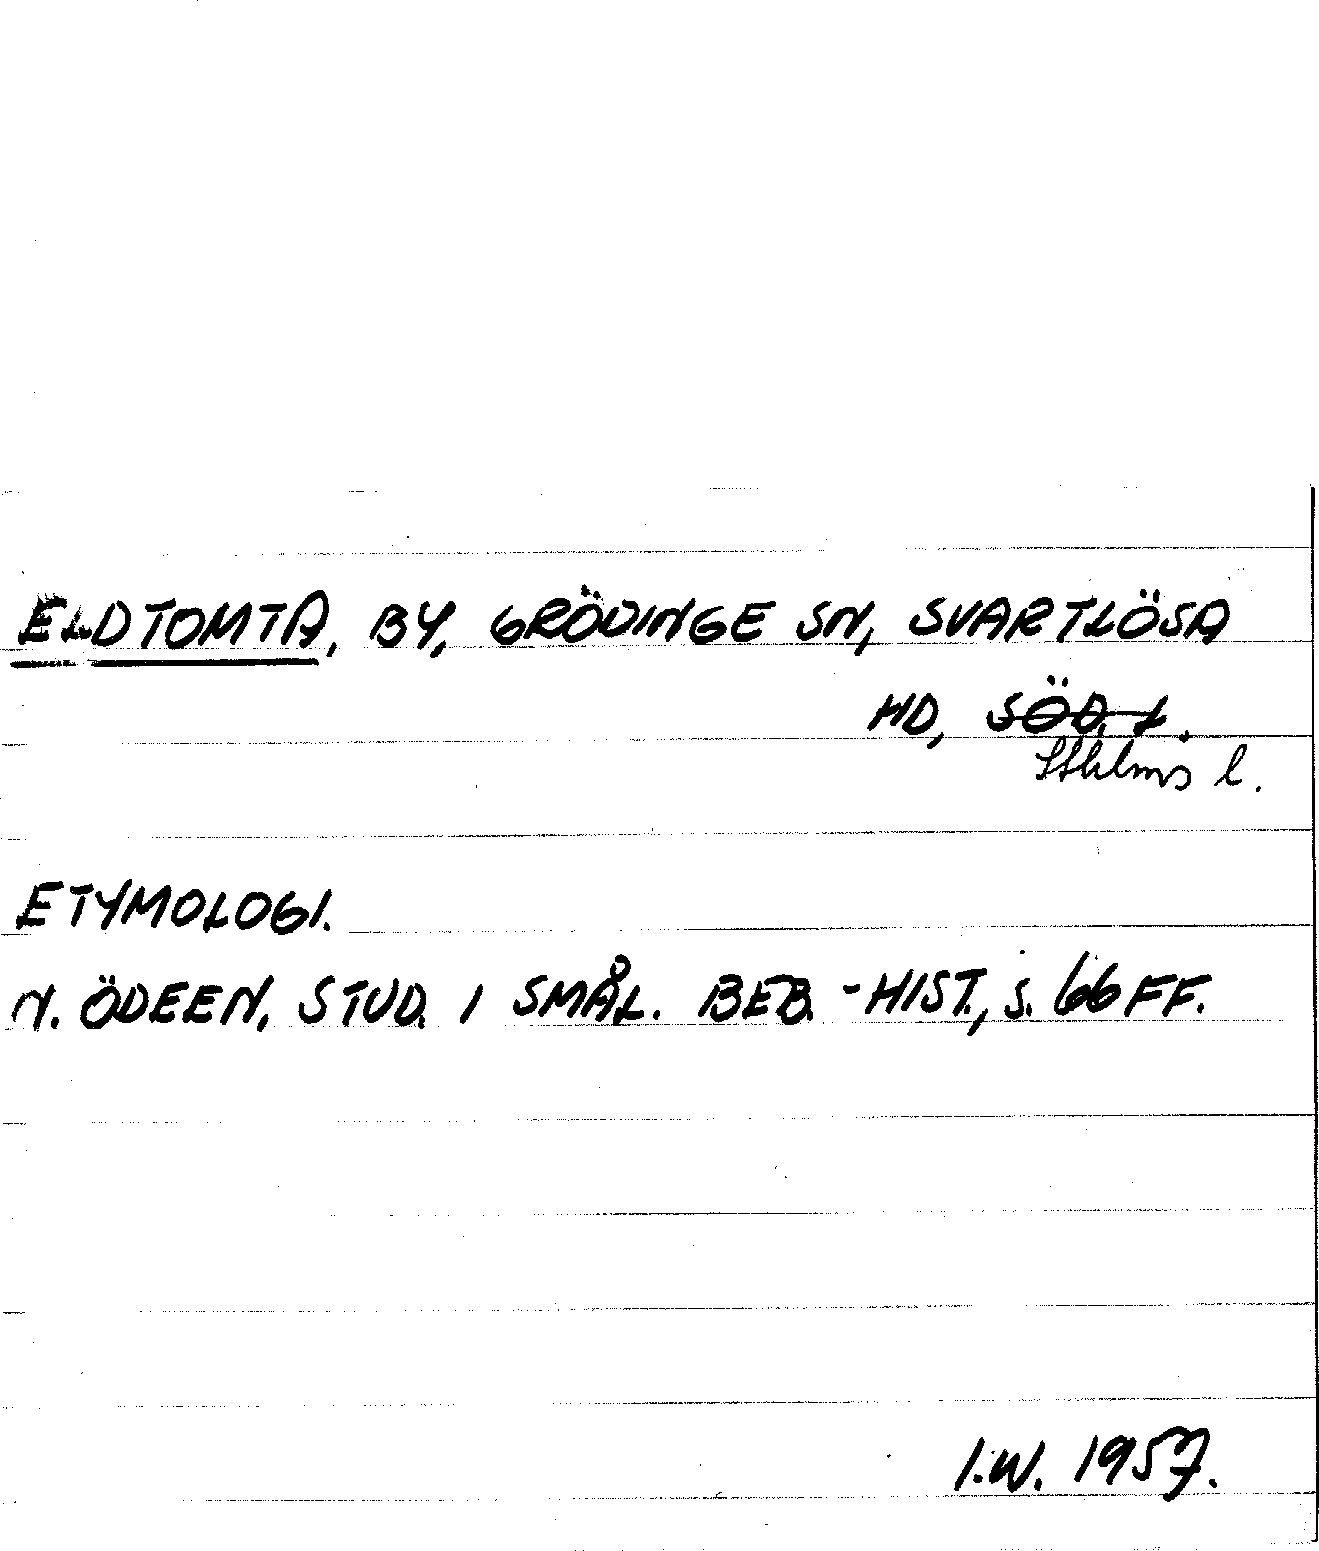 ELDTOMTA, BY, GRÖDINGE SN, SVARTLÖSA
HD, SÖD. L.
Sthlms l.
ETYMOLOGI.
N. ÖDEEN, STUD. I SMÅL. BEB.-HIST., S. 66 FF.
I.W. 1957.